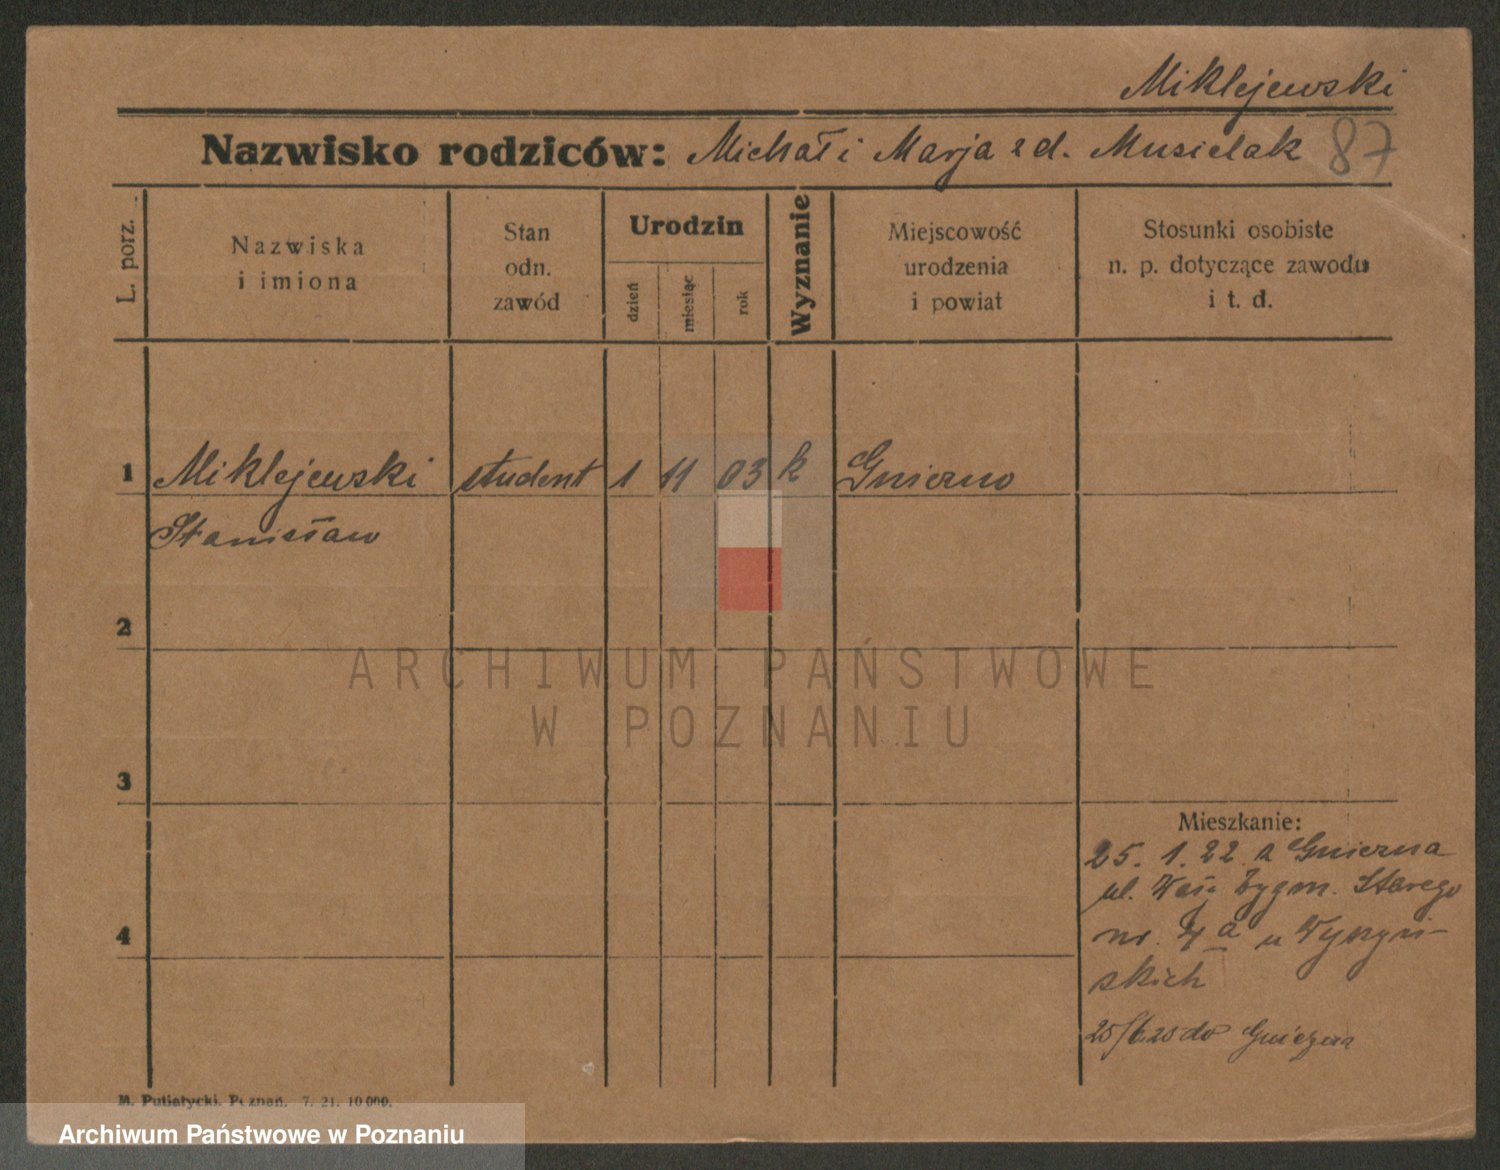 Miklejewski
Nazwisko rodziców: Michał i Marja z d. Musielak 87
L. porz.
Nazwiska
i imiona
Stan
odn.
zawód
Urodzin
dzień
miesiąc
rok
Wyznanie
Miejscowość
urodzenia
i powiat
Stosunki osobiste
n. p. dotyczące zawodu
i t. d.
1 Miklejewski student 1 11 03 k Gniezno
Stanisław
2
ARCHIWUM PAŃSTWOWE
W POZNANIU
3
Mieszkanie:
25. 1. 22 z Gniezna
ul. Zygm. Starego
4
nr. a u Wyszyń-
skich
do Gniezna
M. Putiatycki. Poznań. 7. 21. 10 000.
Archiwum Państwowe w Poznaniu